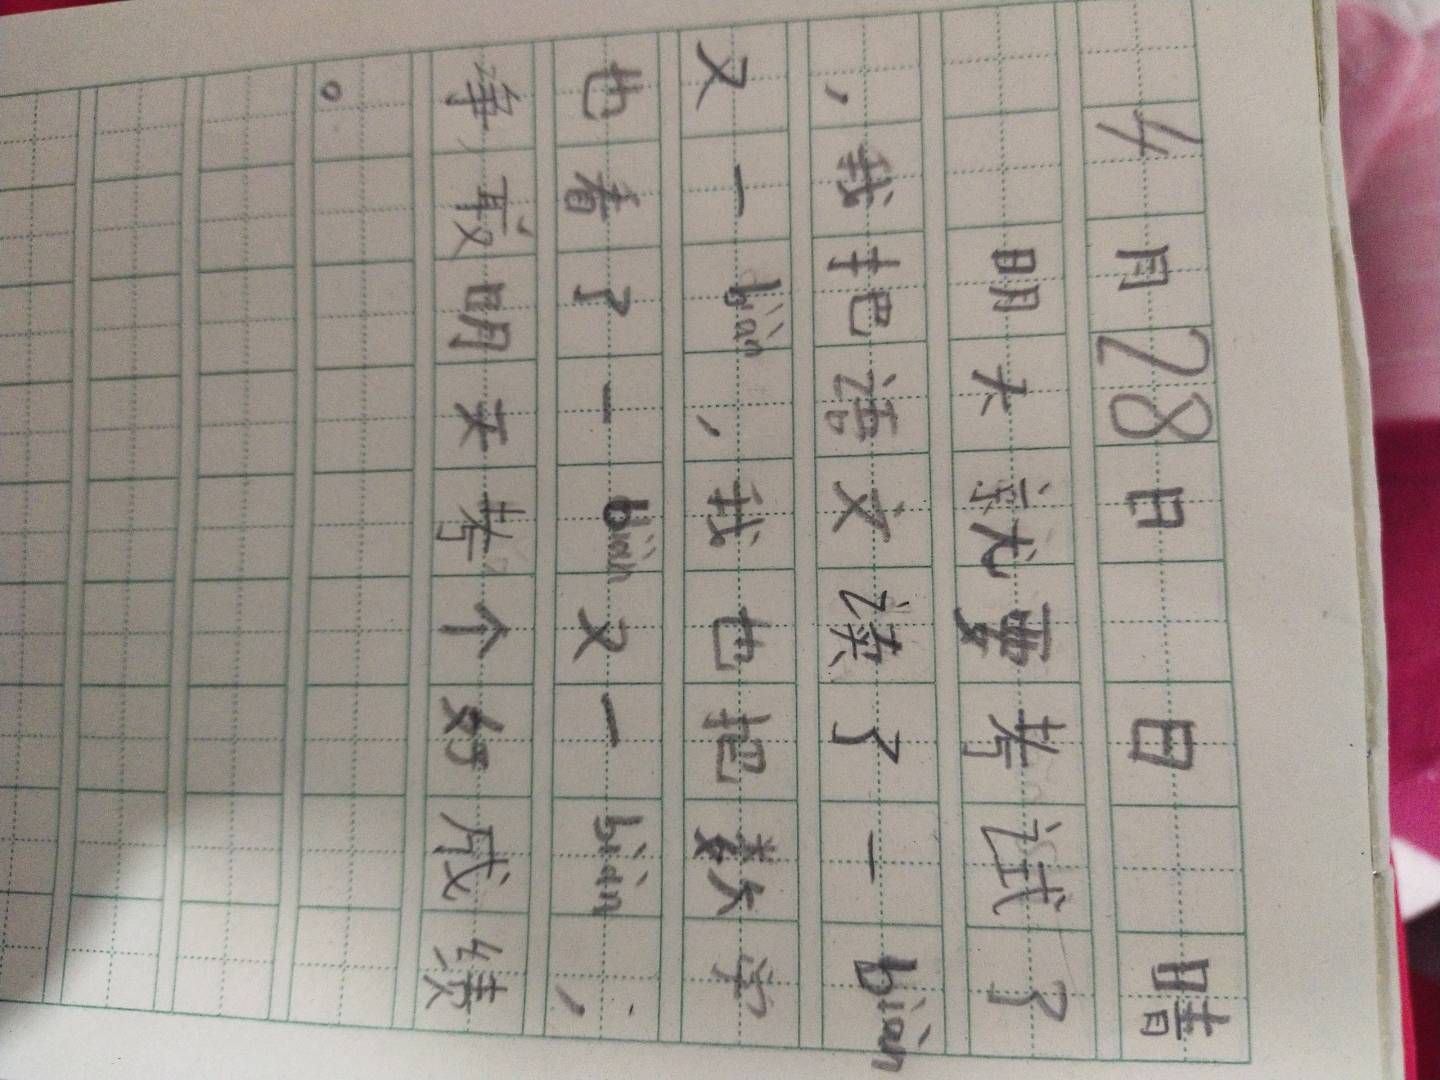 4月28日 日 晴
明天就要考试了
，我把语文读了一biàn
又一biàn，我也把数学
也看了一biàn又一biàn，
争取明天考个好成绩
。